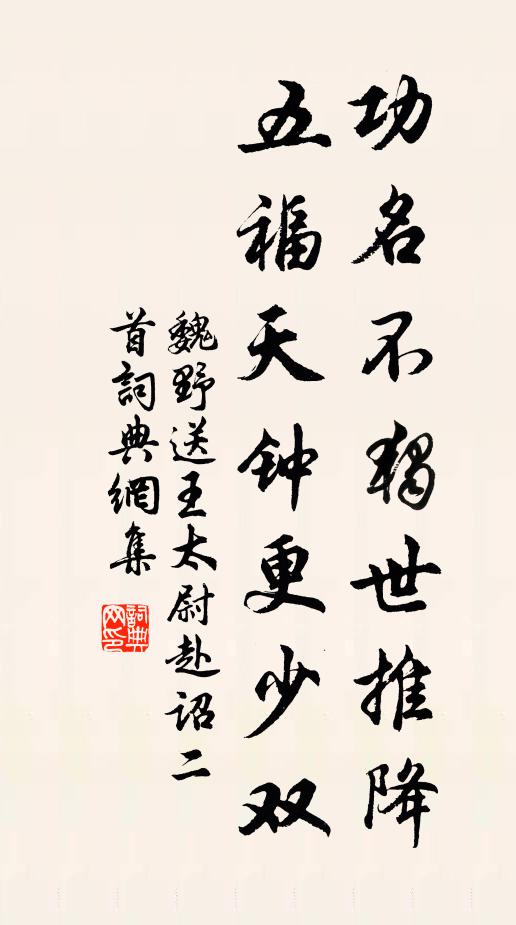 功名不独世推降
五福天钟更少双
魏野送王太尉赴诏二
首詞典網集
詞典
网印